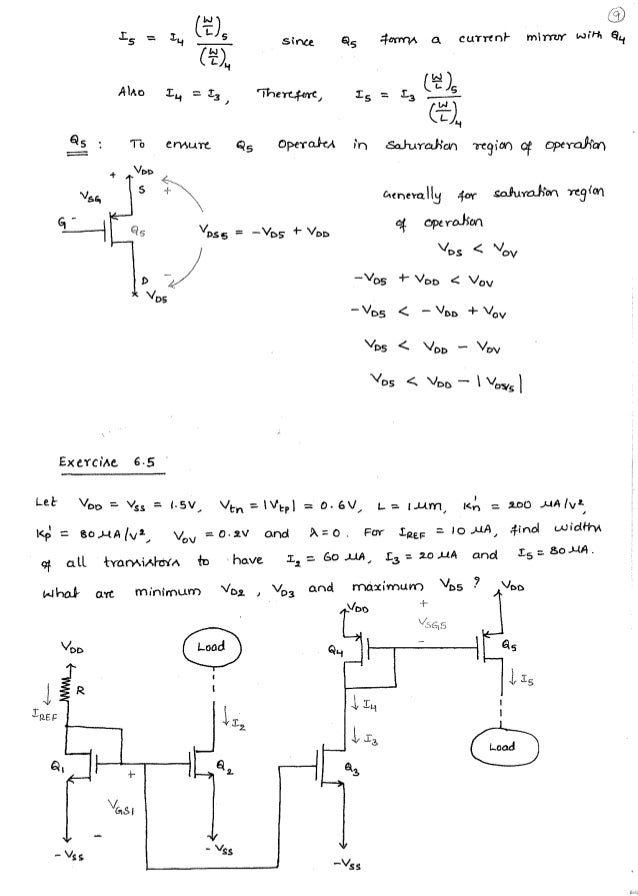 9
I5 = I4 (W/L)5 / (W/L)4 since Q5 forms a current mirror with Q4
Also I4 = I3, Therefore, I5 = I3 (W/L)5 / (W/L)4
Q5 : To ensure Q5 operates in saturation region of operation
VDD
+
S +
VSG
G -
Q5
VDS5 = -VD5 + VDD
D -
VD5
Generally for saturation region
of operation
VDS < VOV
-VD5 + VDD < VOV
-VD5 < -VDD + VOV
VD5 < VDD - VOV
VD5 < VDD - |VOV5|
Exercise 6.5
Let VDD = VSS = 1.5V, Vtn = |Vtp| = 0.6V, L = 1μm, Kn' = 200 μA/V²,
Kp' = 80 μA/V², VOV = 0.2V and λ = 0. For IREF = 10 μA, find widths
of all transistors to have I2 = 60 μA, I3 = 20 μA and I5 = 80 μA.
What are minimum VD2, VD3 and maximum VD5 ?
VDD
VDD
+
VSG5
-
Q4
Q5
VDD
Load
R
IREF
I2
I4
I3
I5
Load
Q1
+
Q2
Q3
VGS1
-
-VSS
-VSS
-VSS